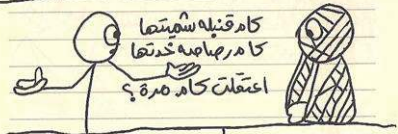 كام قنبله شميتها
كام رصاصه خدتها
اعتقلت كام مرة ؟